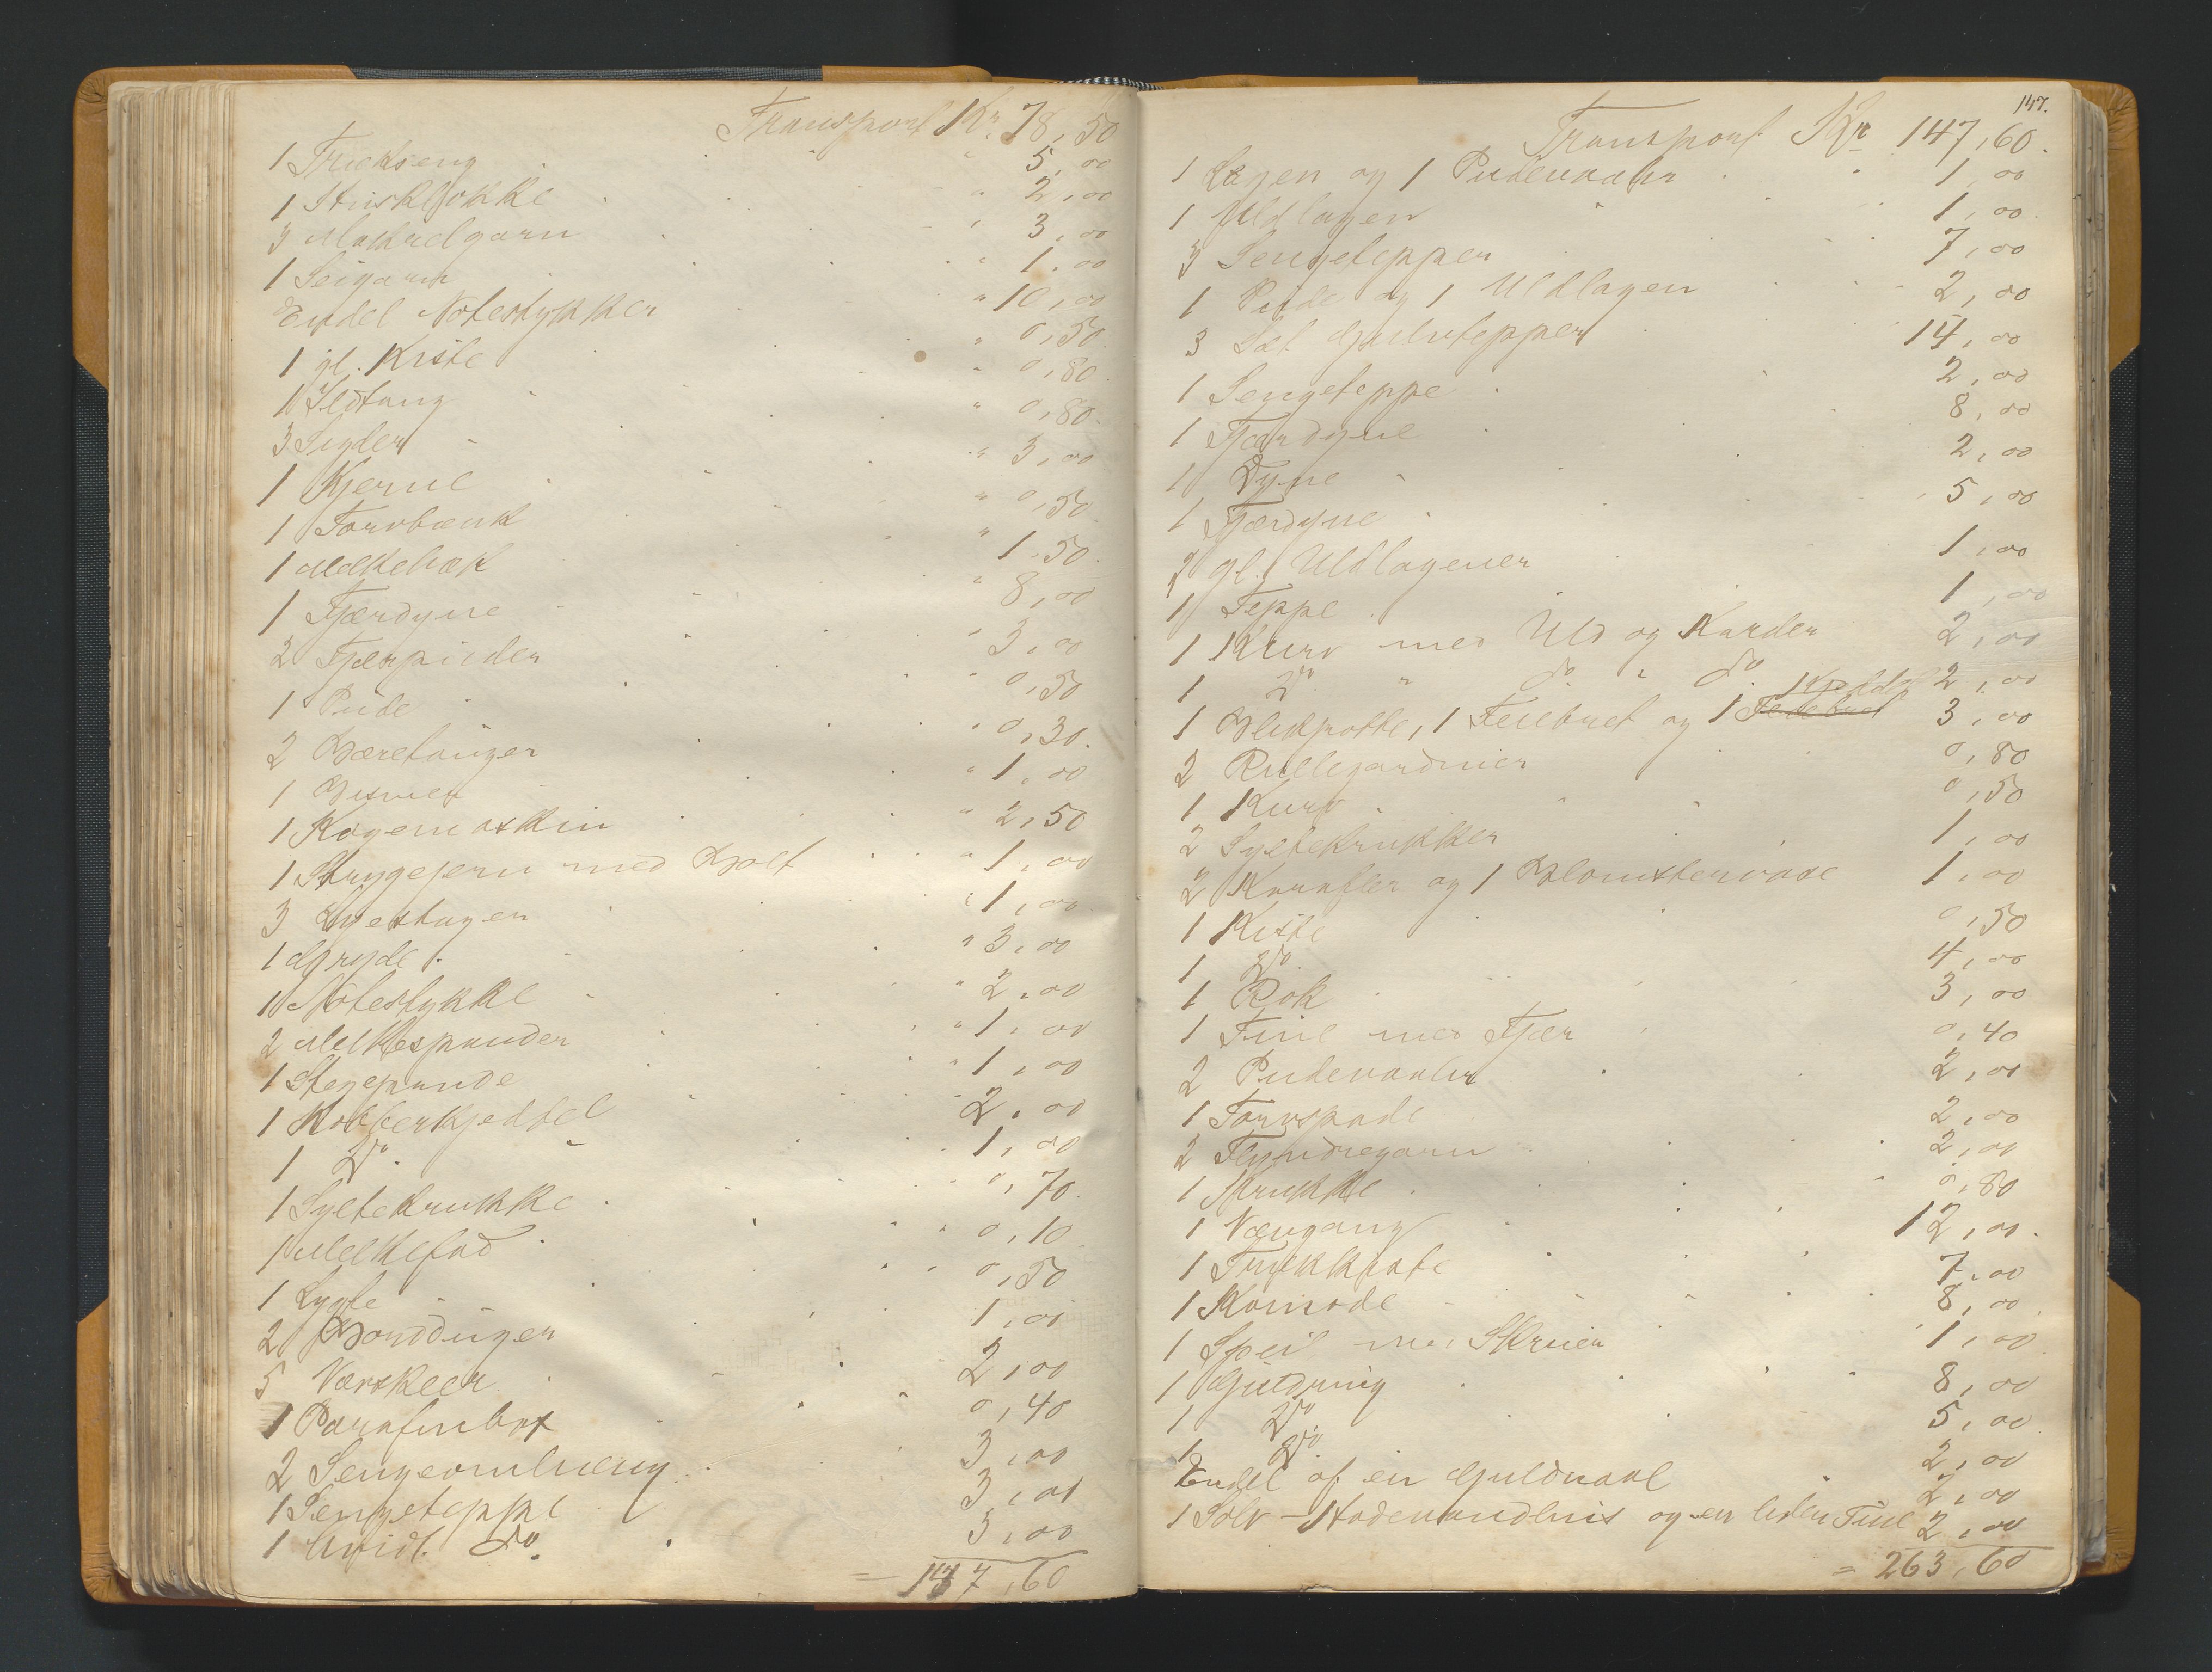 Transport Kr. 78,50
1 Trækseng " 5,00
1 Huskløkke " 2,00
3 Makrelgarn " 3,00
1 Seigarn " 1,00
Endel Notestykker " 10,00
1 gl. Kiste " 0,50
1 Ildtang " 0,80
3 Sigder " 0,80
1 Kjerne " 3,00
1 Torvbænk " 0,50
1 1,50
1 Fjærdyne " 8,00
2 Fjærpuder " 3,00
1 Pude " 0,50
2 Bæretøiger " 0,30
1 Bismer " 1,00
1 Kogemaskin " 2,50
1 Strygejern med Bolt " 1,00
3 Lysestager " 1,00
1 Gryde " 3,00
1 Notestykke " 2,00
2 Melkespander " 1,00
1 Stegepande " 1,00
1 Kobberkjeddel 2,00
1 Do 1,00
1 Syltekrukke 0,70
1 Melkefad 0,10
1 Lygte 0,50
2 Bordduger 1,00
5 2,00
1 Parafinbox 0,40
2 Sengeomhæng 3,00
1 Sengeteppe 3,00
1 hvidt do 3,00
= 147,60
147.
Transport Kr 147,60
1 Lagen og 1 Pudevaar 1,00
1 Uldlagen 1,00
3 Sengetepper 7,00
1 Pude og 1 Uldlagen 2,00
3 Sæt Gulvtepper 14,00
1 Sengeteppe 2,00
1 Fjærdyne 8,00
1 Dyne 2,00
1 Fjærdyne 5,00
2 gl. Uldlagener 1,00
1 Teppe 1,00
1 Kurv med Uld og Karder 2,00
1 Do " do " do 2,00
1 Blikpotte, 1 Feiebret og 1 Feiebret Kjeddel 3,00
2 Rullegardiner 0,80
1 Kurv 0,50
2 Syltekrukker 1,00
2 Karafler og 1 Blomstervase 1,00
1 Kiste 0,50
1 Do 4,00
1 Rok 3,00
1 Tine med Fjær 0,40
2 Pudevaar 2,00
1 Torvspade 2,00
2 Flyndregarn 2,00
1 Krukke 0,80
1 Vævgang 12,00
1 Trækkiste 7,00
1 Komode 8,00
1 Speil med Skruer 1,00
1 Guldring 8,00
1 Do 5,00
1 Do 2,00
Endel af en Guldnaal 2,00
1 Sølv-Hodevandhus og en liden Tine 2,00
= 263,60